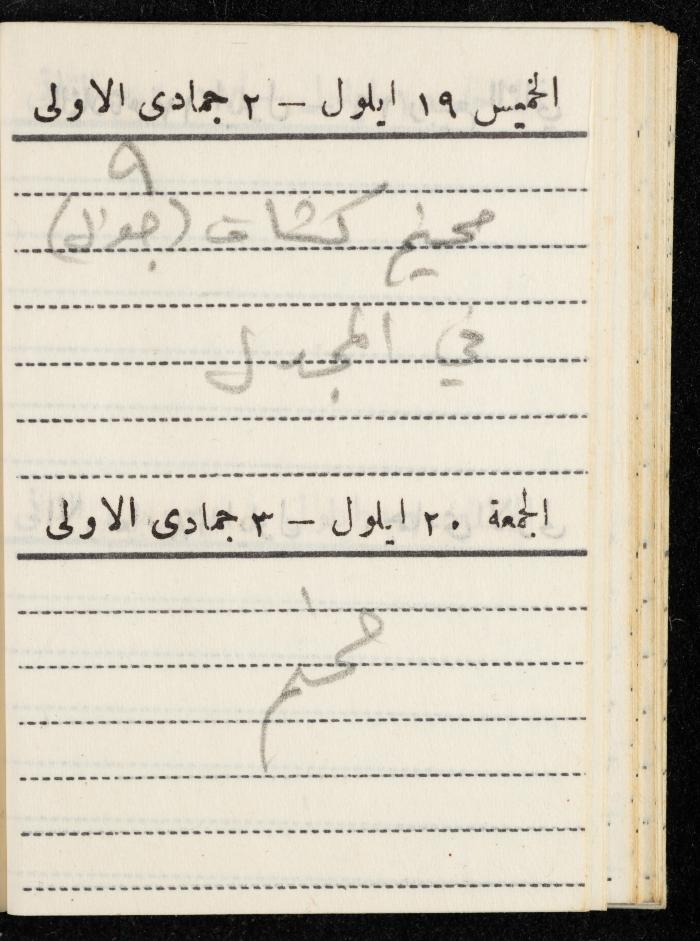 الخميس ١٩ ايلول — ٢ جمادى الاولى
٩
مخيم كشاف (جوال)
في المجدل
الجمعة ٢٠ ايلول — ٣ جمادى الاولى
مخيم